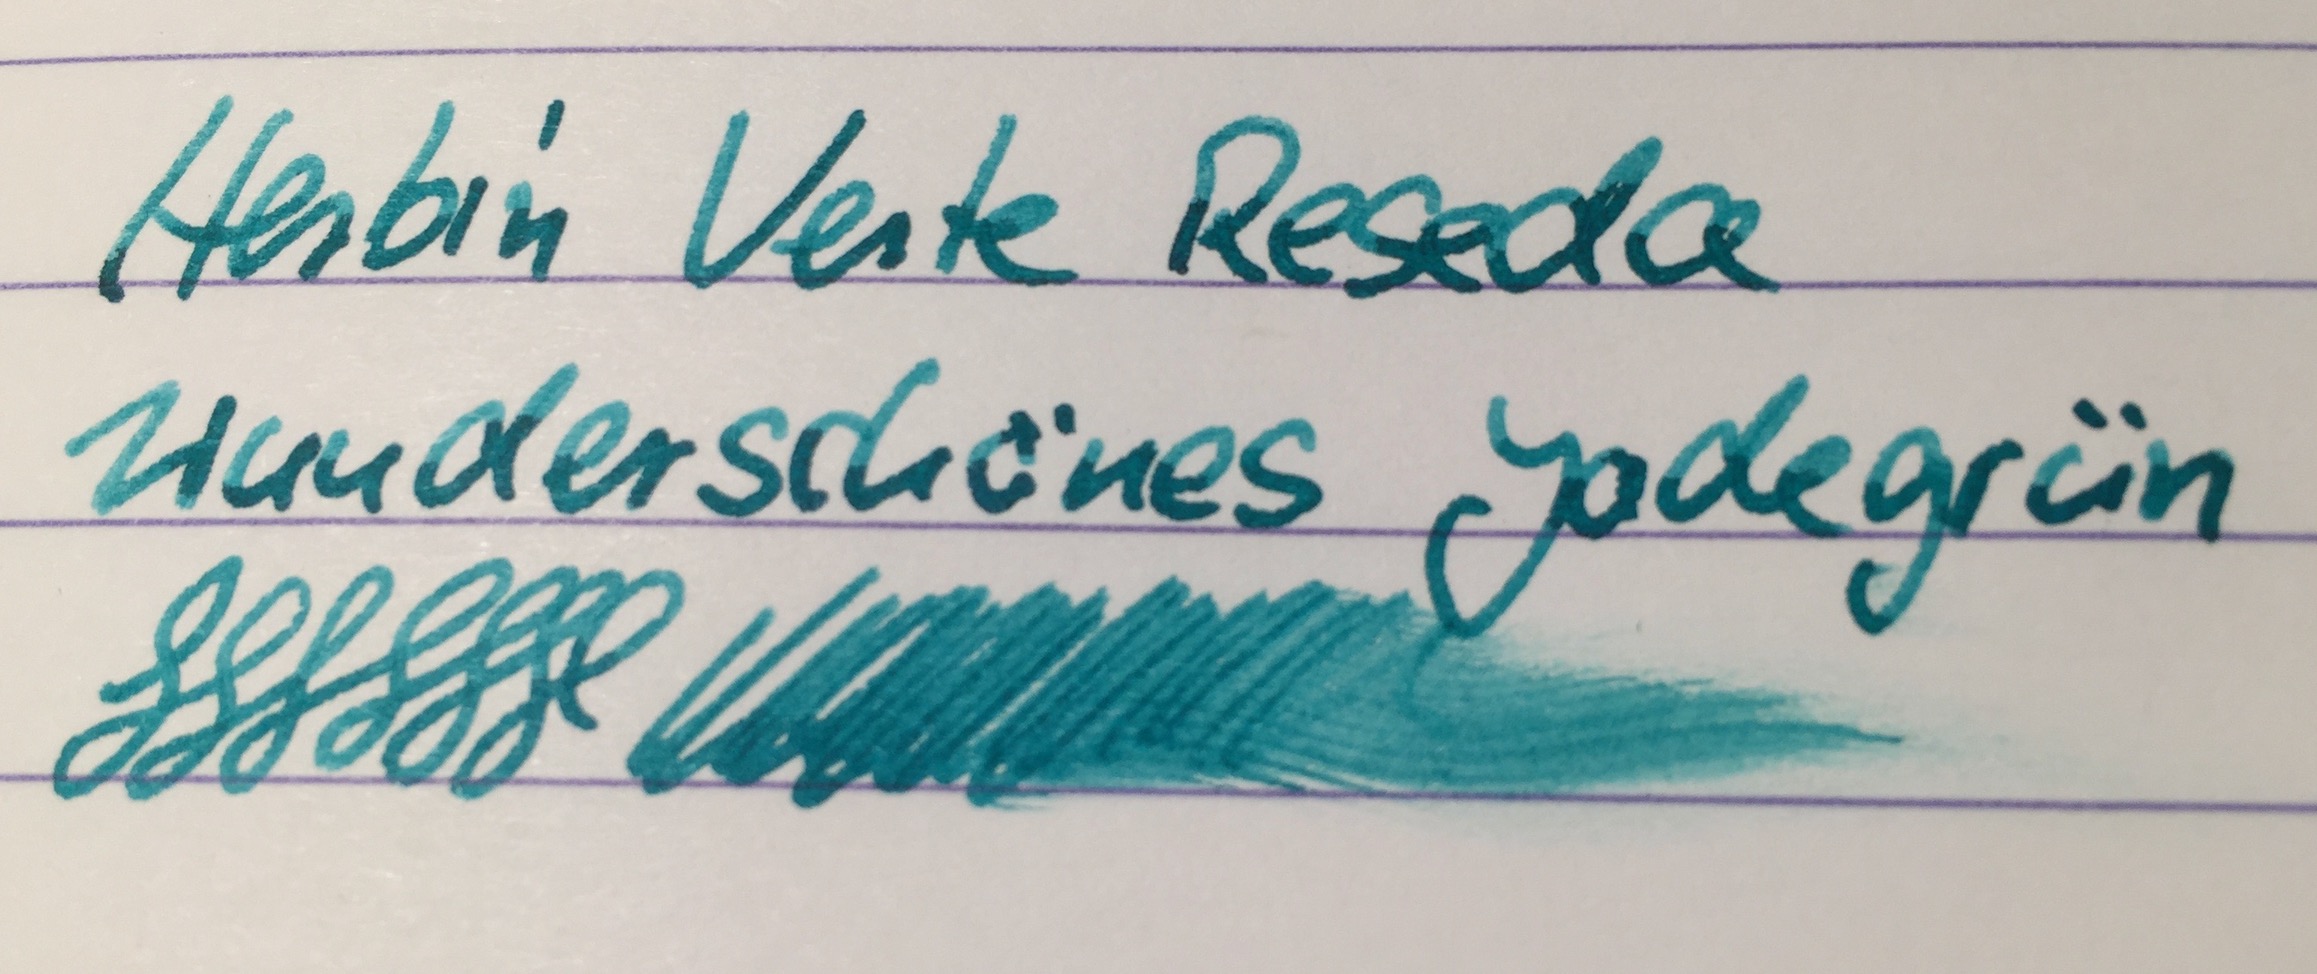 Herbin Verte Reseda
wunderschönes Jadegrün